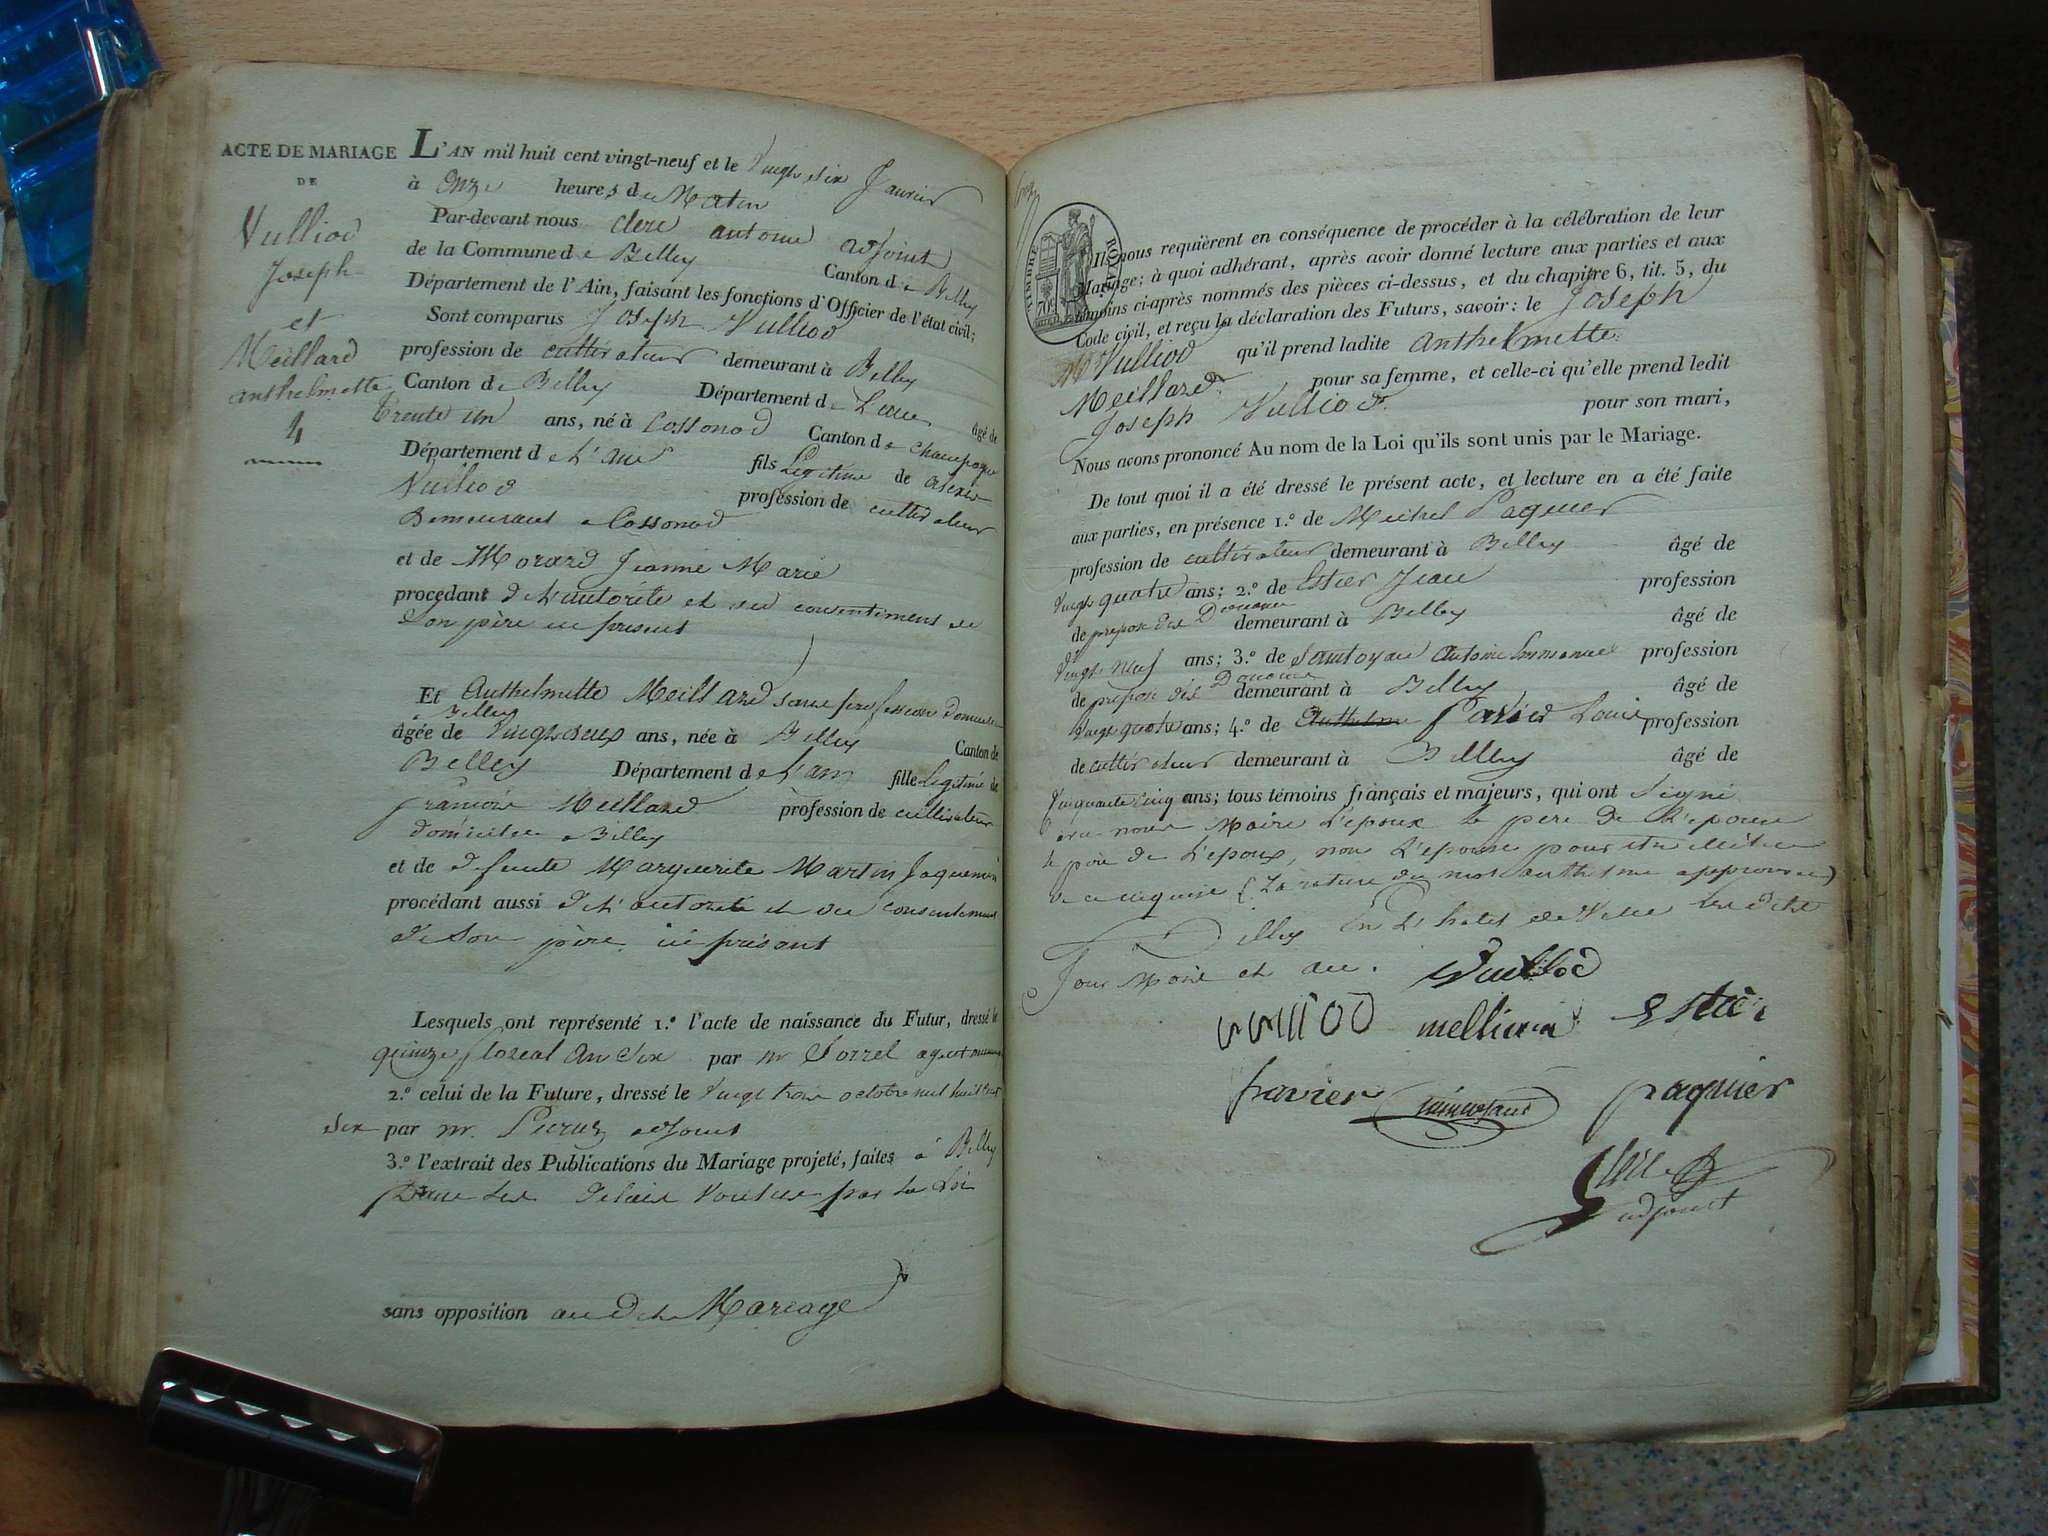 ACTE DE MARIAGE
DE
Vulliod
Joseph
et
Meillard
anthelmette
4
L'AN mil huit cent vingt-neuf et le Vingt six Janvier
à Onze heures du Matin
Par-devant nous Clerc antoine adjoint
de la Commune de Belley Canton de Belley
Département de l'Ain, faisant les fonctions d'Officier de l'état civil;
Sont comparus Joseph Vulliod
profession de cultivateur demeurant à Belley
Canton de Belley Département de L'ain âgé de
trente un ans, né à Lossonod Canton de Champagne
Département de L'ain fils Legitime de alexis
Vulliod profession de cultivateur
Demeurant a Lossonod
et de Morard Jeanne Marie
procédant de L'autorité et du consentement de
Son père ici present
Et Anthelmette Meillard sans profession domiciliée
Belley
âgée de Vingt deux ans, née à Belley Canton de
Belley Département de L'ain fille Legitime de
françois Meillard profession de cultivateur
domicilie a Belley
et de defunte Marguerite Martin Jaquemin
procédant aussi de L'autorité et du consentement
de Son père ici présent
Lesquels ont représenté 1.º l'acte de naissance du Futur, dressé le
quinze floreal an Six par mr Sorrel agent
2.º celui de la Future, dressé le Vingt trois octobre mil huit cent
Six par mr. adjoint
3.º l'extrait des Publications du Mariage projeté, faites à Belley
Dans Les delais Voulus par La Loi
sans opposition audit Mariage
TIMBRE ROYAL
70c
Ils nous requièrent en conséquence de procéder à la célébration de leur
Mariage; à quoi adhérant, après avoir donné lecture aux parties et aux
témoins ci-après nommés des pièces ci-dessus, et du chapitre 6, tit. 5, du
Code civil, et reçu la déclaration des Futurs, savoir: le Joseph
Vulliod qu'il prend ladite Anthelmette
Meillard pour sa femme, et celle-ci qu'elle prend ledit
Joseph Vulliod pour son mari,
Nous avons prononcé Au nom de la Loi qu'ils sont unis par le Mariage.
De tout quoi il a été dressé le présent acte, et lecture en a été faite
aux parties, en présence 1.º de Michel Paquier
profession de cultivateur demeurant à Belley âgé de
Vingt quatre ans; 2.º de Estier Jean profession
de preposé des Douanes demeurant à Belley âgé de
Vingt Neuf ans; 3.º de antoine Emmanuel profession
de preposé des Douanes demeurant à Belley âgé de
Vingt quatre ans; 4.º de Anthelme Louis profession
de cultivateur demeurant à Belley âgé de
Cinquante Cinq ans; tous témoins français et majeurs, qui ont Signé
avec nous Maire L'epoux le pere de L'epouse
le père de L'epoux, non L'epouse pour etre illétree
de ce requise (La rature du mot anthelme approuvée)
Belley En L'hotel de Ville Les dits
Jour Mois et an.
Vulliod
mellierin
paquier
adjoint